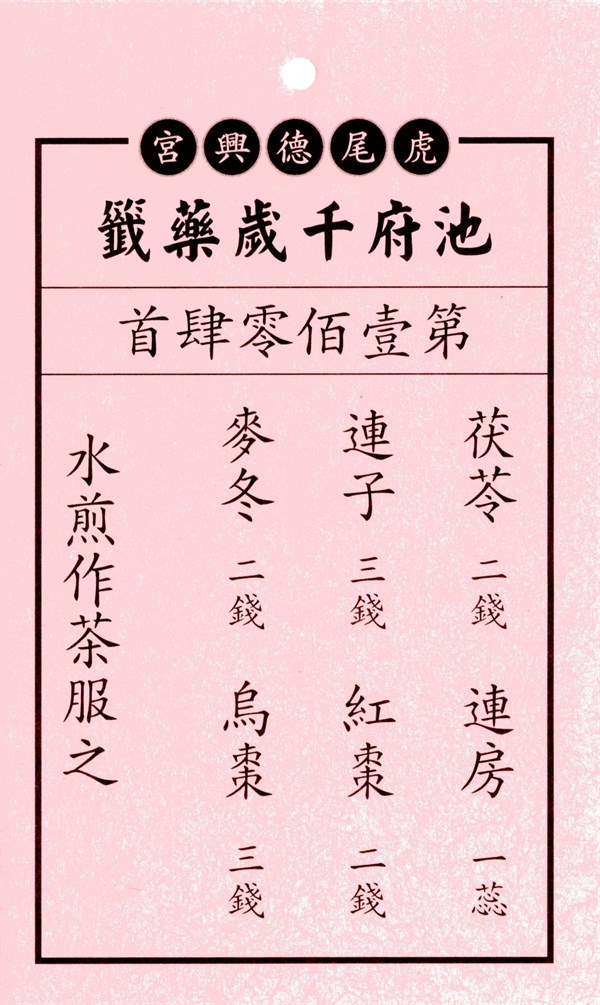 虎尾德興宮
池府千歲藥籤
第壹佰零肆首
茯苓 二錢 連房 一蕊
連子 三錢 紅棗 二錢
麥冬 二錢 烏棗 三錢
水煎作茶服之